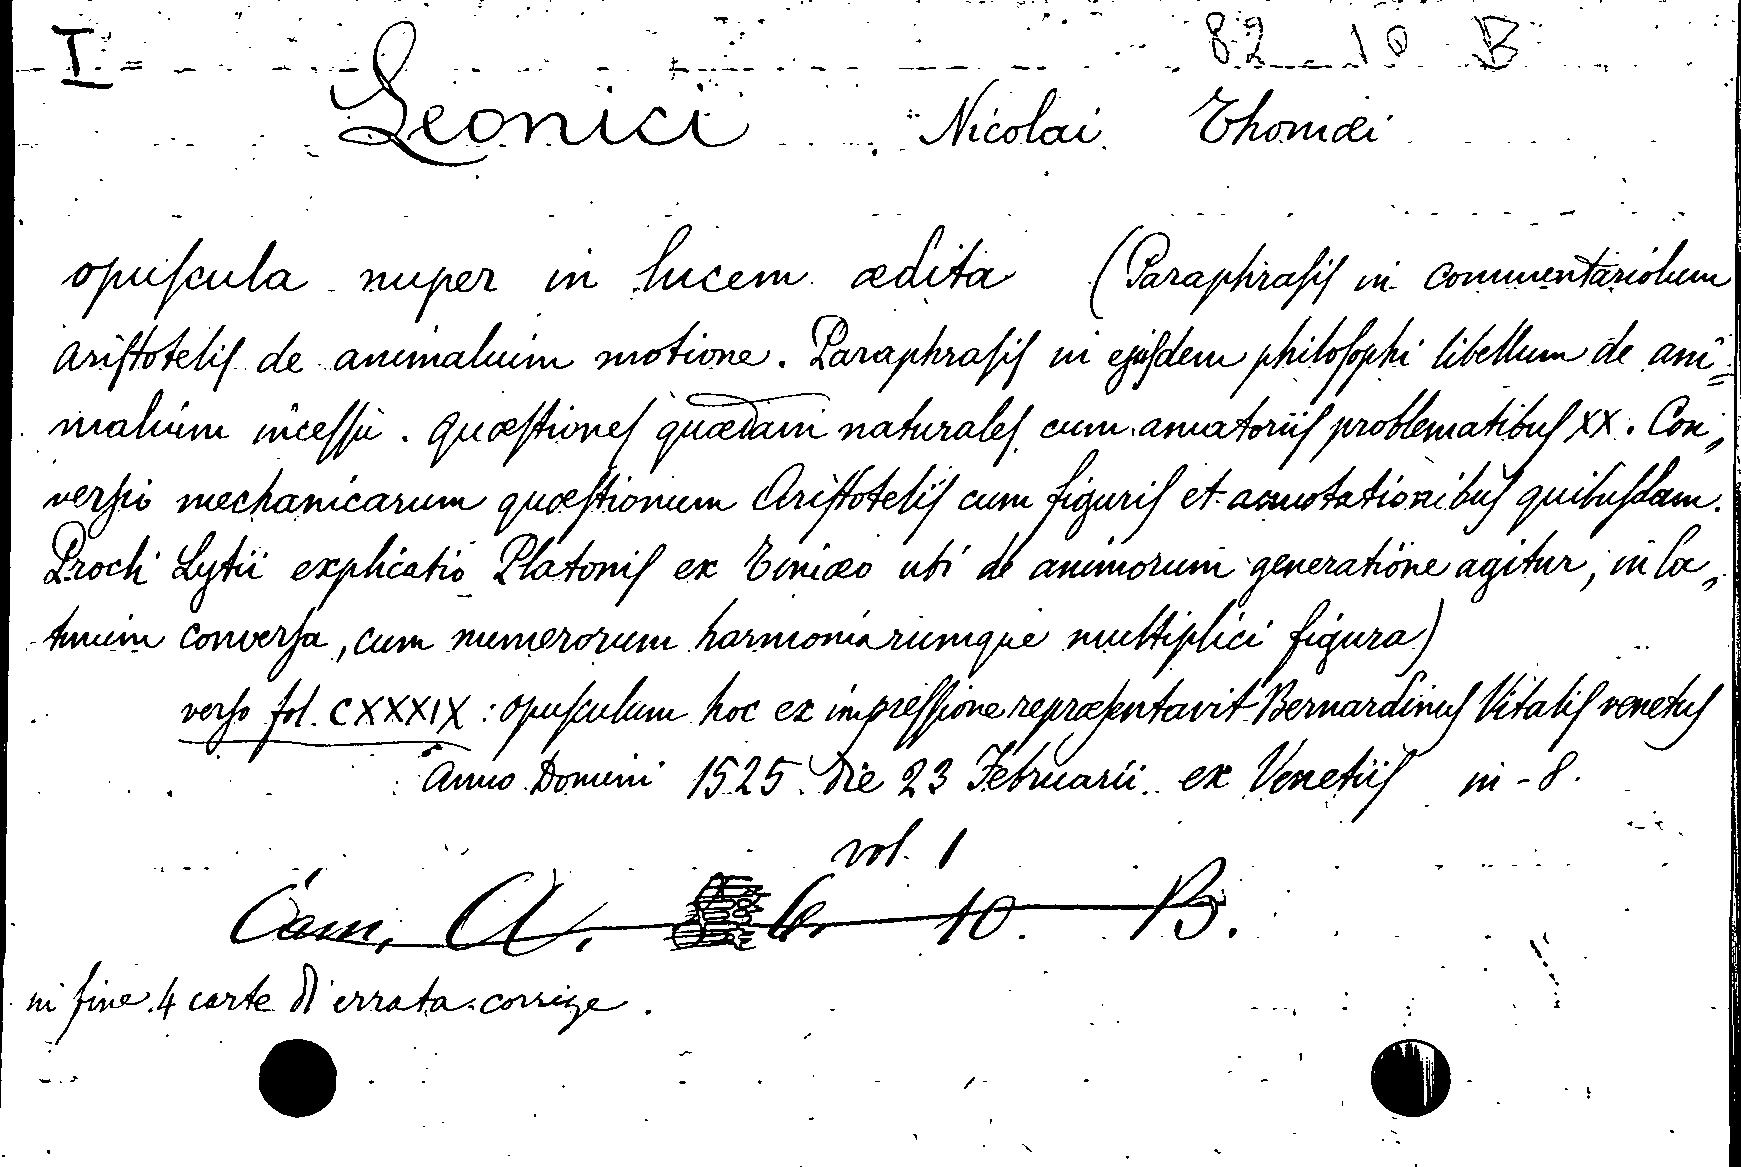 I 82 10 B
Leonici Nicolai Thomæi
opuſcula nuper in lucem ædita (Paraphraſiſ in commentariolum
ariſtoteliſ de animalium motione. Paraphraſiſ in ejuſdem philoſophi libellum de ani=
malium inceſſu. quæſtioneſ quædam naturaleſ cum amatoriiſ problematibuſ XX. Con„
verſio mechanicarum quæſtionum Ariſtoteliſ cum figuriſ et annotationibuſ quibuſdam.
Procli Lytii explicatio Platoniſ ex Timæo ubi de animorum generatione agitur, in la„
tinum converſa, cum numerorum harmoniarumque multiplici figura)
verſo fol. CXXXIX : opuſculum hoc ex impreſſione repræſentavit Bernardinuſ Vitaliſ venetuſ
Anno Domini 1525 die 23 Februarii ex Venetiiſ in-8.
vol. 1
Cam. A. 6. 10. B.
in fine 4 carte di errata-corrige.